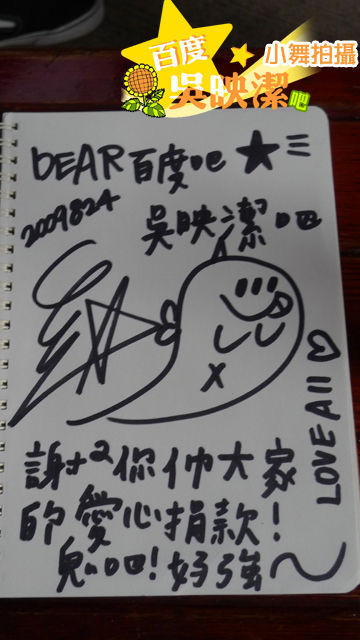 百度
小舞拍攝
吳映潔吧
DEAR百度吧★三
2009824
吳映潔吧
X
LOVE All ♡
謝2你們大家
的愛心捐款!
鬼吧!好強~